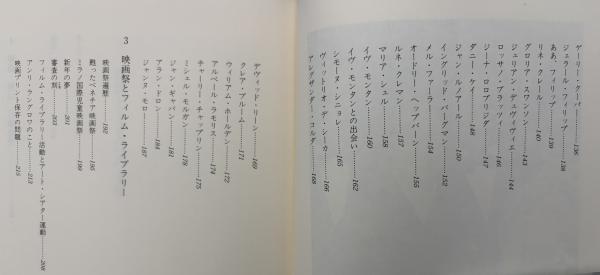 ゲーリー・クーパー……136
ジェラール・フィリップ……138
ああ、フィリップ……139
リネ・クレール……140
グロリア・スワンソン……143
ジュリアン・デュヴィヴィエ……144
ロッサノ・ブラッツィ……146
ジーナ・ロロブリジダ……147
ダニー・ケイ……148
ジャン・ルノアール……150
イングリッド・バーグマン……152
メル・ファーラー……154
オードリー・ヘップバーン……155
ルネ・クレマン……157
マリア・シェル……158
イヴ・モンタン……160
イヴ・モンタンとの出会い……162
シモーヌ・シニョレ……165
ヴィットリオ・デ・シーカ……166
アレグザンダー・コルダ……168
デヴィッド・リーン……169
クレア・ブルーム……171
ウィリアム・ホールデン……172
アルベール・ラモリス……174
チャーリー・チャップリン……175
ミシェル・モルガン……178
ジャン・ギャバン……181
アラン・ドロン……184
ジャンヌ・モロー……187
3 映画祭とフィルム・ライブラリー
映画祭遍歴……192
甦ったベネチア映画祭……195
ミラノ国際児童映画祭……199
新年の夢……201
審査の別……202
フィルム・ライブラリー活動とアート・シアター運動……208
アンリ・ラングロワのこと……213
映画プリント保存の問題……215